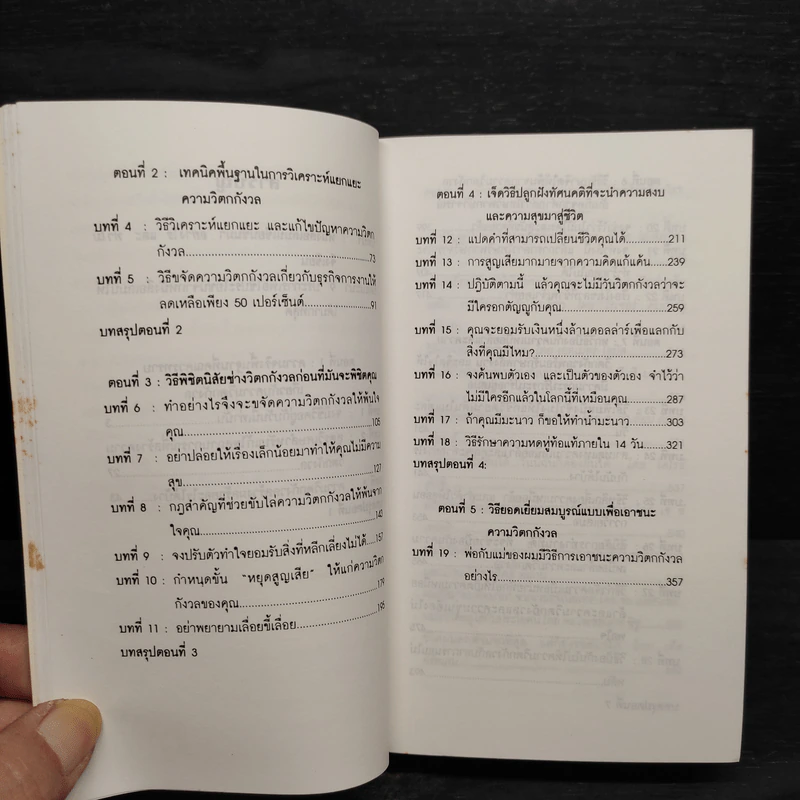 ตอนที่ 2 : เทคนิคพื้นฐานในการวิเคราะห์แยกแยะ
ความวิตกกังวล
บทที่ 4 : วิธีวิเคราะห์แยกแยะ และแก้ไขปัญหาความวิตก
กังวล....................73
บทที่ 5 : วิธีขจัดความวิตกกังวลเกี่ยวกับธุรกิจการงานให้
ลดเหลือเพียง 50 เปอร์เซ็นต์....................91
บทสรุปตอนที่ 2
ตอนที่ 3 : วิธีพิชิตนิสัยช่างวิตกกังวลก่อนที่มันจะพิชิตคุณ
บทที่ 6 : ทำอย่างไรจึงจะขจัดความวิตกกังวลให้พ้นใจ
คุณ....................105
บทที่ 7 : อย่าปล่อยให้เรื่องเล็กน้อยมาทำให้คุณไม่มีความ
สุข....................127
บทที่ 8 : กฎสำคัญที่ช่วยขับไล่ความวิตกกังวลให้พ้นจาก
ใจคุณ....................143
บทที่ 9 : จงปรับตัวทำใจยอมรับสิ่งที่หลีกเลี่ยงไม่ได้....157
บทที่ 10 : กำหนดขั้น "หยุดสูญเสีย" ให้แก่ความวิตก
กังวลของคุณ....................179
บทที่ 11 : อย่าพยายามเลื่อยขี้เลื่อย....................195
บทสรุปตอนที่ 3
ตอนที่ 4 : เจ็ดวิธีปลูกฝังทัศนคติที่จะนำความสงบ
และความสุขมาสู่ชีวิต
บทที่ 12 : แปดคำที่สามารถเปลี่ยนชีวิตคุณได้...............211
บทที่ 13 : การสูญเสียมากมายจากความคิดแก้แค้น.........239
บทที่ 14 : ปฏิบัติตามนี้ แล้วคุณจะไม่มีวันวิตกกังวลว่าจะ
มีใครอกตัญญูกับคุณ....................259
บทที่ 15 : คุณจะยอมรับเงินหนึ่งล้านดอลล่าร์เพื่อแลกกับ
สิ่งที่คุณมีไหม?....................273
บทที่ 16 : จงค้นพบตัวเอง และเป็นตัวของตัวเอง จำไว้ว่า
ไม่มีใครอีกแล้วในโลกนี้ที่เหมือนคุณ...............287
บทที่ 17 : ถ้าคุณมีมะนาว ก็ขอให้ทำน้ำมะนาว..........303
บทที่ 18 : วิธีรักษาความหดหู่ท้อแท้ภายใน 14 วัน.......321
บทสรุปตอนที่ 4:
ตอนที่ 5 : วิธียอดเยี่ยมสมบูรณ์แบบเพื่อเอาชนะ
ความวิตกกังวล
บทที่ 19 : พ่อกับแม่ของผมมีวิธีการเอาชนะความวิตกกังวล
อย่างไร....................357